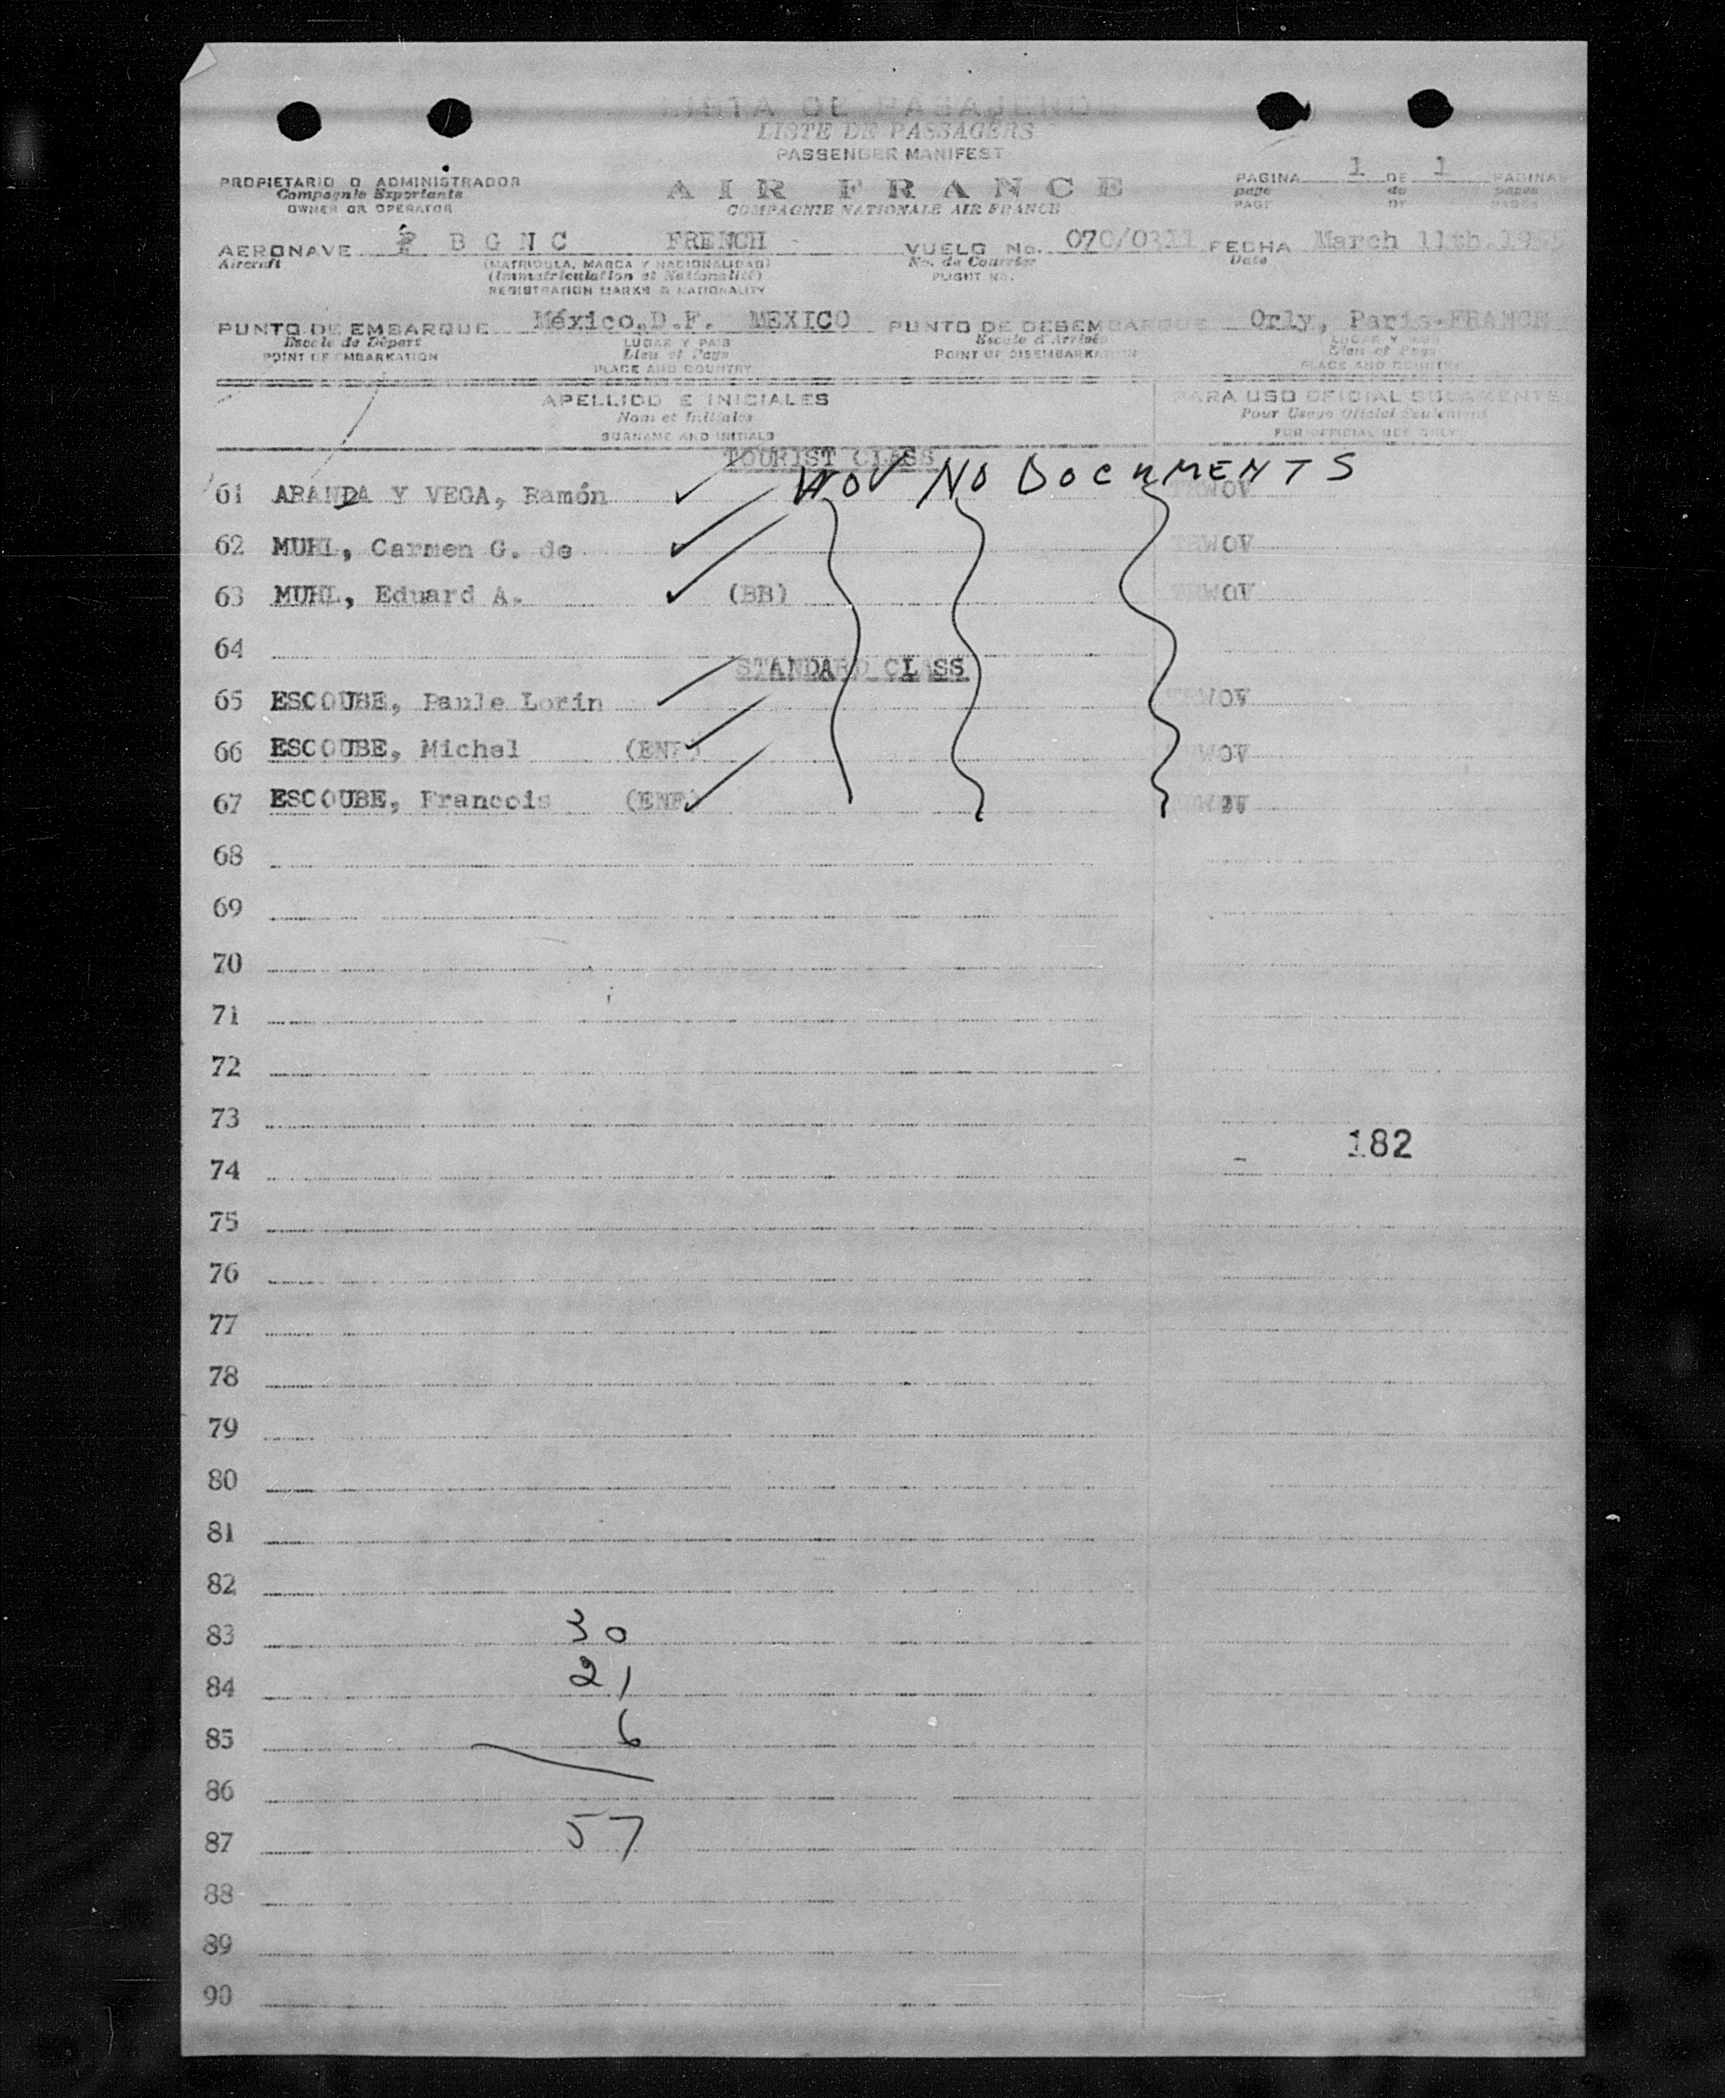 LISTA DE PASAJEROS
LISTE DE PASSAGERS
PASSENGER MANIFEST
PROPIETARIO O ADMINISTRADOR
Compagnie Exportante
OWNER OR OPERATOR
AIR FRANCE
COMPAGNIE NATIONALE AIR FRANCE
PAGINA 1 DE 1 PAGINAS
page de pages
PAGE OF PAGES
AERONAVE F B G N C FRENCH VUELO No. 070/0311 FECHA March 11th.
Aircraft (MATRICULA, MARCA Y NACIONALIDAD) No. de Courrier Date
(Immatriculation et Nationalité) FLIGHT NO.
REGISTRATION MARKS & NATIONALITY
PUNTO DE EMBARQUE México,D.F. MEXICO PUNTO DE DESEMBARQUE Orly, Paris-FRANCE
Escale de Départ LUGAR Y PAIS Escale d'Arrivée LUGAR Y PAIS
POINT OF EMBARKATION Lieu et Pays POINT OF DISEMBARKATION Lieu et Pays
PLACE AND COUNTRY PLACE AND COUNTRY
APELLIDO E INICIALES PARA USO OFICIAL SOLAMENTE
Nom et Initiales Pour Usage Officiel Seulement
SURNAME AND INITIALS FOR OFFICIAL USE ONLY
TOURIST CLASS
WOV NO DOCUMENTS
61 ARANDA Y VEGA, Ramón TRWOV
62 MUHL, Carmen G. de TRWOV
63 MUHL, Eduard A. (BB) TRWOV
64
STANDARD CLASS
65 ESCOUBE, Paule Lorin TRWOV
66 ESCOUBE, Michel (ENF) TRWOV
67 ESCOUBE, Francois (ENF) TRWOV
68
69
70
71
72
73
182
74
75
76
77
78
79
80
81
82
83 30
84 21
85 6
86
87 57
88
89
90